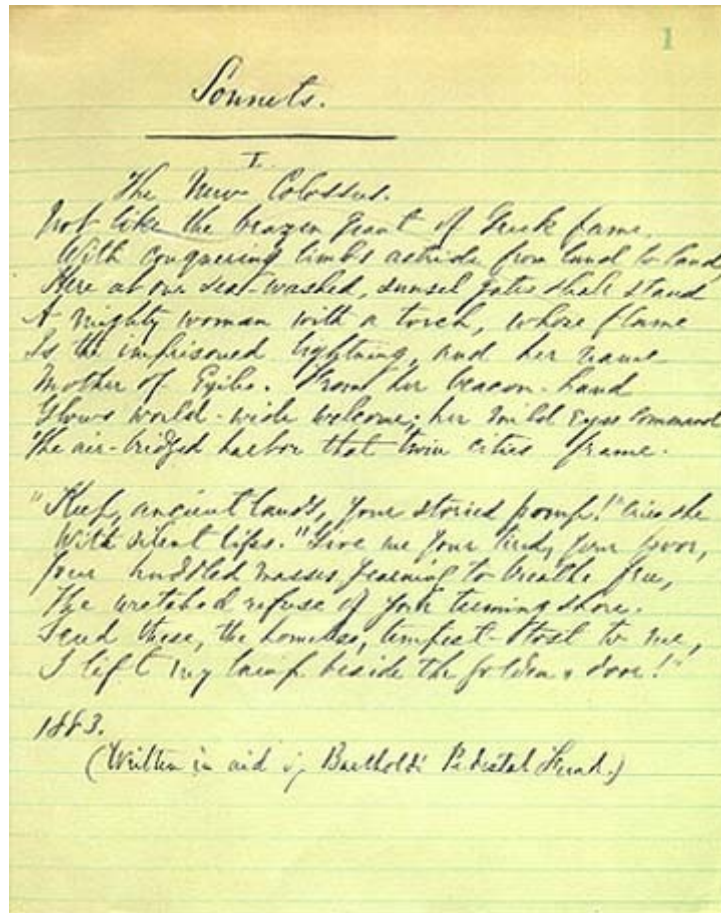 1
Sonnets.
I.
The New Colossus.
Not like the brazen giant of Greek fame,
With conquering limbs astride from land to land,
Here at our sea-washed, sunset gates shall stand
A mighty woman with a torch, whose flame
Is the imprisoned lightning, and her name
Mother of Exiles. From her beacon-hand
Glows world-wide welcome; her mild eyes command
The air-bridged harbor that twin cities frame.
"Keep, ancient lands, your storied pomp!" cries she
With silent lips. "Give me your tired, your poor,
Your huddled masses yearning to breathe free,
The wretched refuse of your teeming shore.
Send these, the homeless, tempest-tost to me,
I lift my lamp beside the golden door!"
1883.
(Written in aid of Bartholdi Pedestal Fund.)